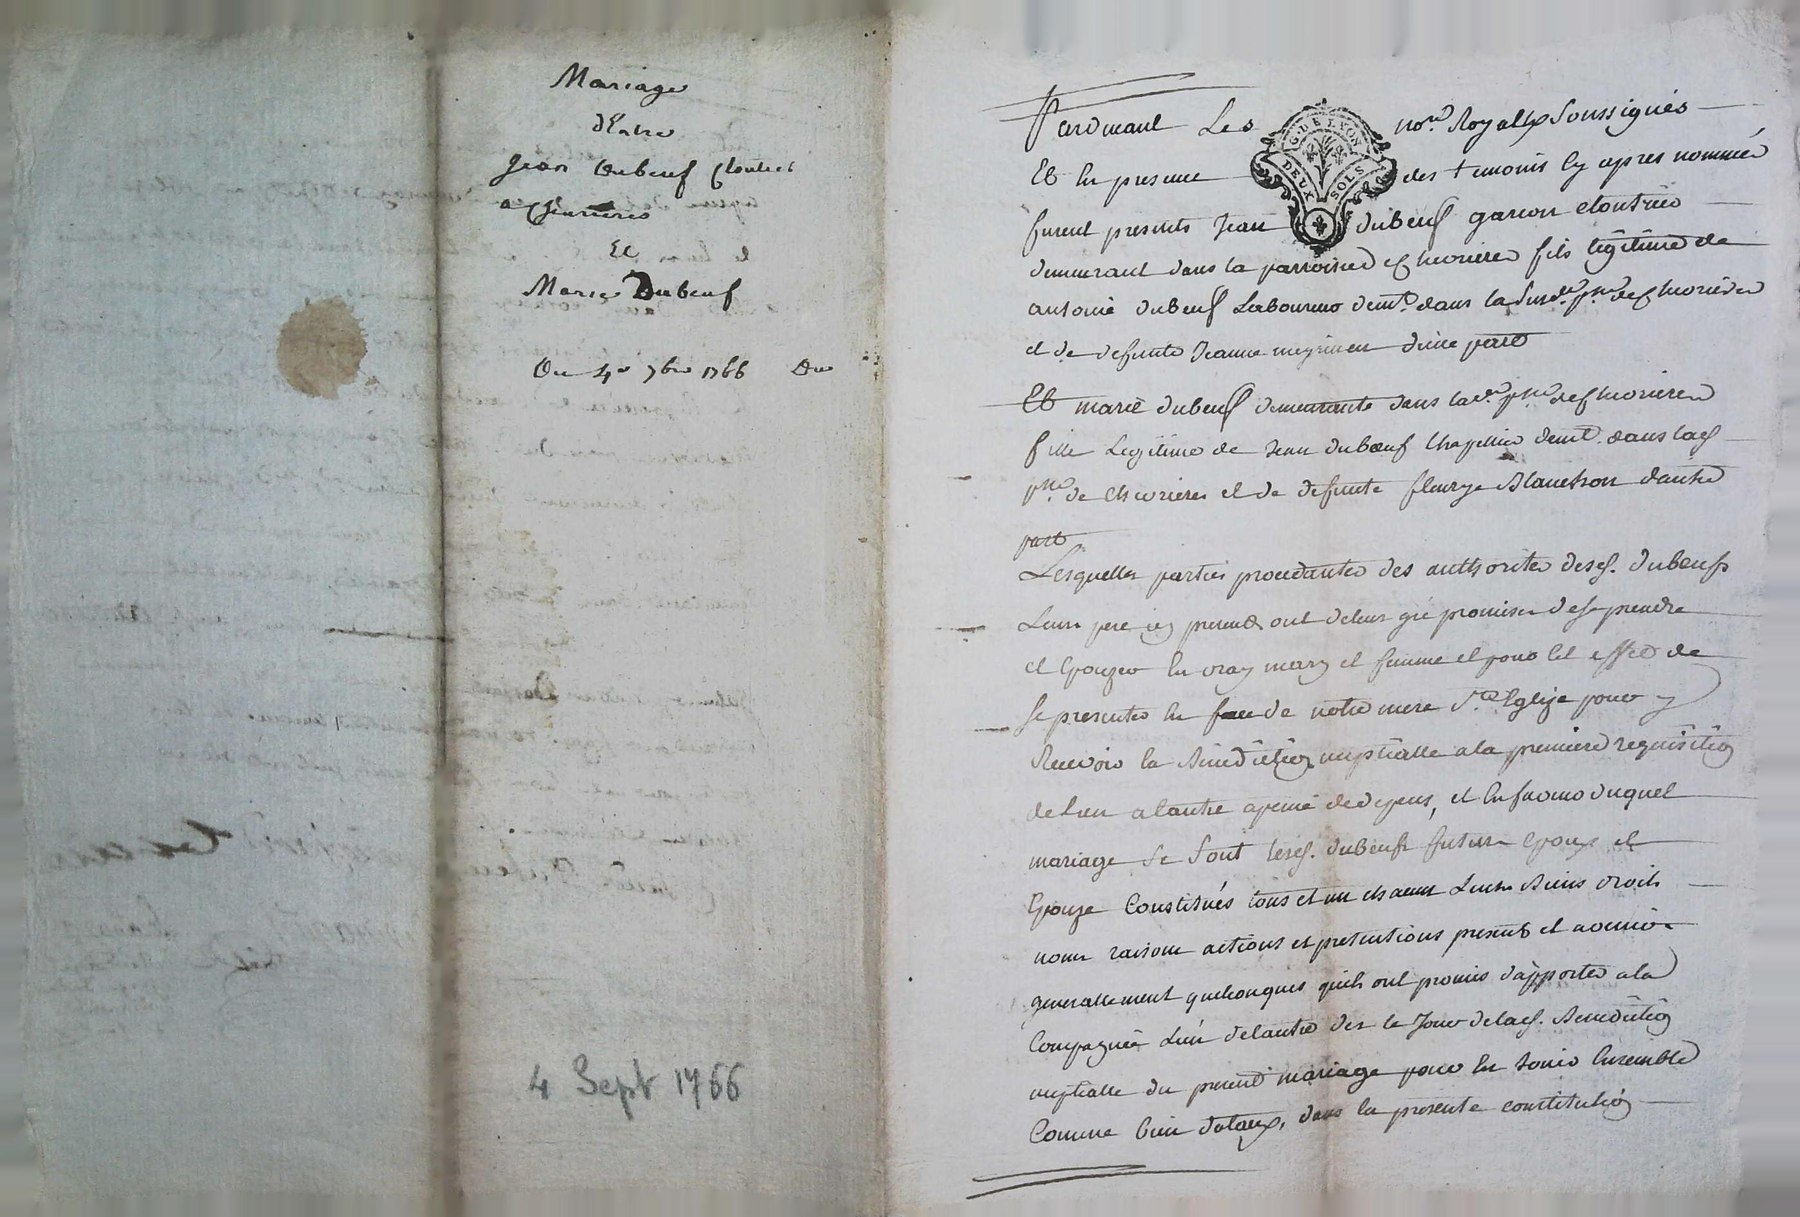 Mariage
d'Entre
Jean Dubeuf Cloutier
a Chevrieres
Et
Marie Dubeuf
Du 4e 7bre 1766 Du
4 Sept 1766
Pardevant Les no.res Royalx Soussignés
G. DE LYON
DEUX SOLS
Et En presence des temoins Cy apres nommés
furent presents Jean dubeuf garcon cloutrier
demeurant dans la parroisse de Chevrieres fils legitime de
antoine dubeuf Laboureur demt. dans la susd. psse de Chevrieres
et de defunte Jeanne d'une part
Et marie dubeuf demeurante dans lad. psse de Chevrieres
fille Legitime de Jean dubœuf Chapellier demt. dans lad
psse de Chevrieres et de defunte fleurye Blanchon d'autre
part
Lesquelles parties procedantes des authorités desd. dubeufs
Leurs pere icy presents ont de leur gré promises de se prendre
et Epouzer En vray mary et femme et pour Cet effet de
se presenter En face de notre mere Ste Eglize pour y
Recevoir la Bénédiction nuptialle a la premiere requisition
de L'un a l'autre a peine de depens, et En faveur duquel
mariage Se Sont lesd. dubeufs futurs Epoux et
Epouze Constitués tous et un chacun Leurs Biens droits
noms raisons actions et pretentions presents et avenir
generallement quelconques qu'ils ont promis d'apporter a la
Compagnie L'un de l'autre des le Jour de lad. Bénédiction
nuptialle du present mariage pour En Jouir Ensemble
Comme bien dotaux, dans la presente constitution